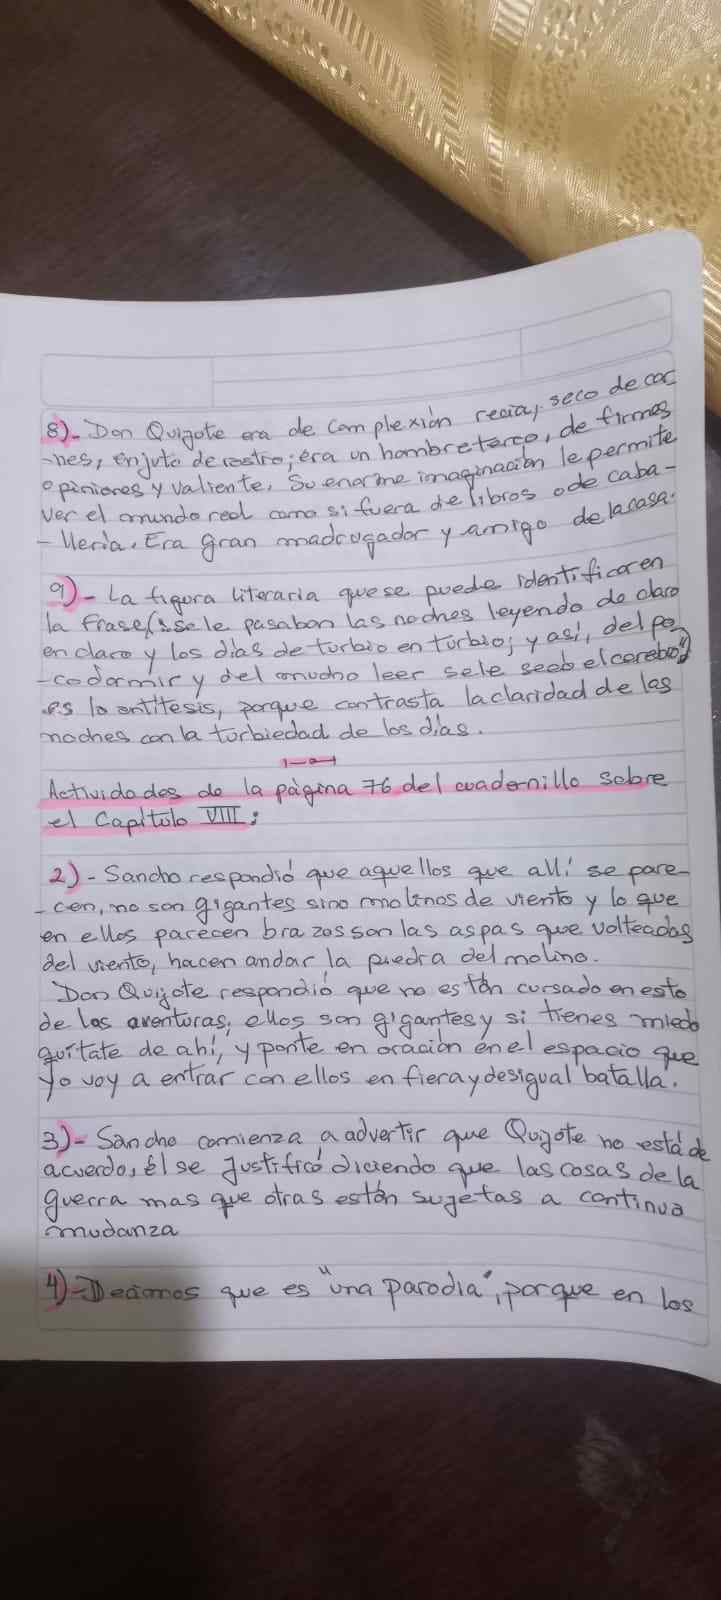 8)- Don Quijote era de complexión recia, seco de car
-nes, enjuto de rostro; era un hombre terco, de firmes
opiniones y valiente. Su enorme imaginación le permite
ver el mundo real como si fuera de libros o de caba-
-llería. Era gran madrugador y amigo de la casa.
9)- La figura literaria que se puede identificar en
la frase (: se le pasaban las noches leyendo de claro
en claro y los días de turbio en turbio; y así, del po
-co dormir y del mucho leer se le secó el cerebro")
es la antítesis, porque contrasta la claridad de las
noches con la turbiedad de los días.
Actividades de la página 76 del cuadernillo sobre
el Capítulo VIII:
2)- Sancho respondió que aquellos que allí se pare-
-cen, no son gigantes sino molinos de viento y lo que
en ellos parecen brazos son las aspas que volteadas
del viento, hacen andar la piedra del molino.
Don Quijote respondió que no están cursado en esto
de las aventuras; ellos son gigantes y si tienes miedo
quítate de ahí, y ponte en oración en el espacio que
yo voy a entrar con ellos en fiera y desigual batalla.
3)- Sancho comienza a advertir que Quijote no está de
acuerdo, él se justificó diciendo que las cosas de la
guerra mas que otras están sujetas a continua
mudanza
4)- Decimos que es "una parodia", porque en los